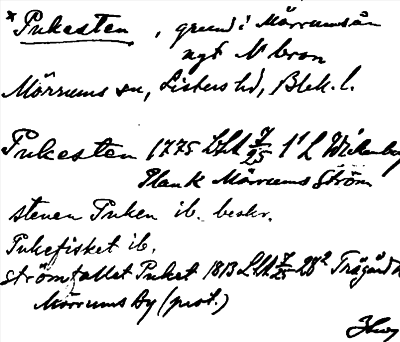 *Pukesten, grund i Mörrumsån
ngt N bron
Mörrums sn, Listers hd, Blek. l.
Pukesten 1775 LSA 7/25 1¹ L Wickenberg
Plank Mörrums Ström
stenen Puken ib. beskr.
Pukefisket ib.
strömfallet Puket 1813 LSA 7/25 28² Trägård
Mörrums by (prot.)